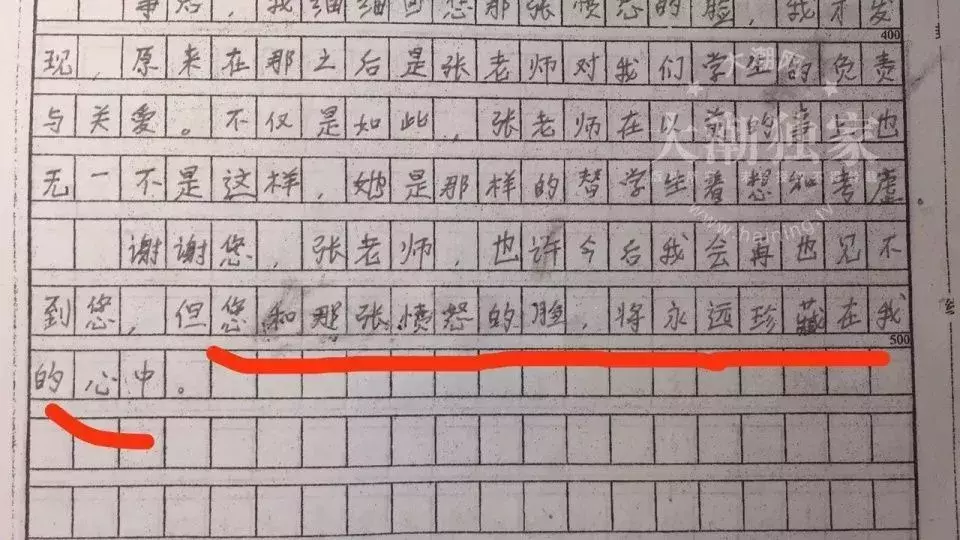 事后，我细细回想那张愤怒的脸，我才发
400
现，原来在那之后是张老师对我们学生的负责
与关爱。不仅是如此，张老师在以前的事也
无一不是这样，她是那样的替学生着想和考虑。
谢谢您，张老师，也许今后我会再也见不
到您，但您和那张愤怒的脸，将永远珍藏在我
500
的心中。
大潮网
大潮独家
www.haining.tv